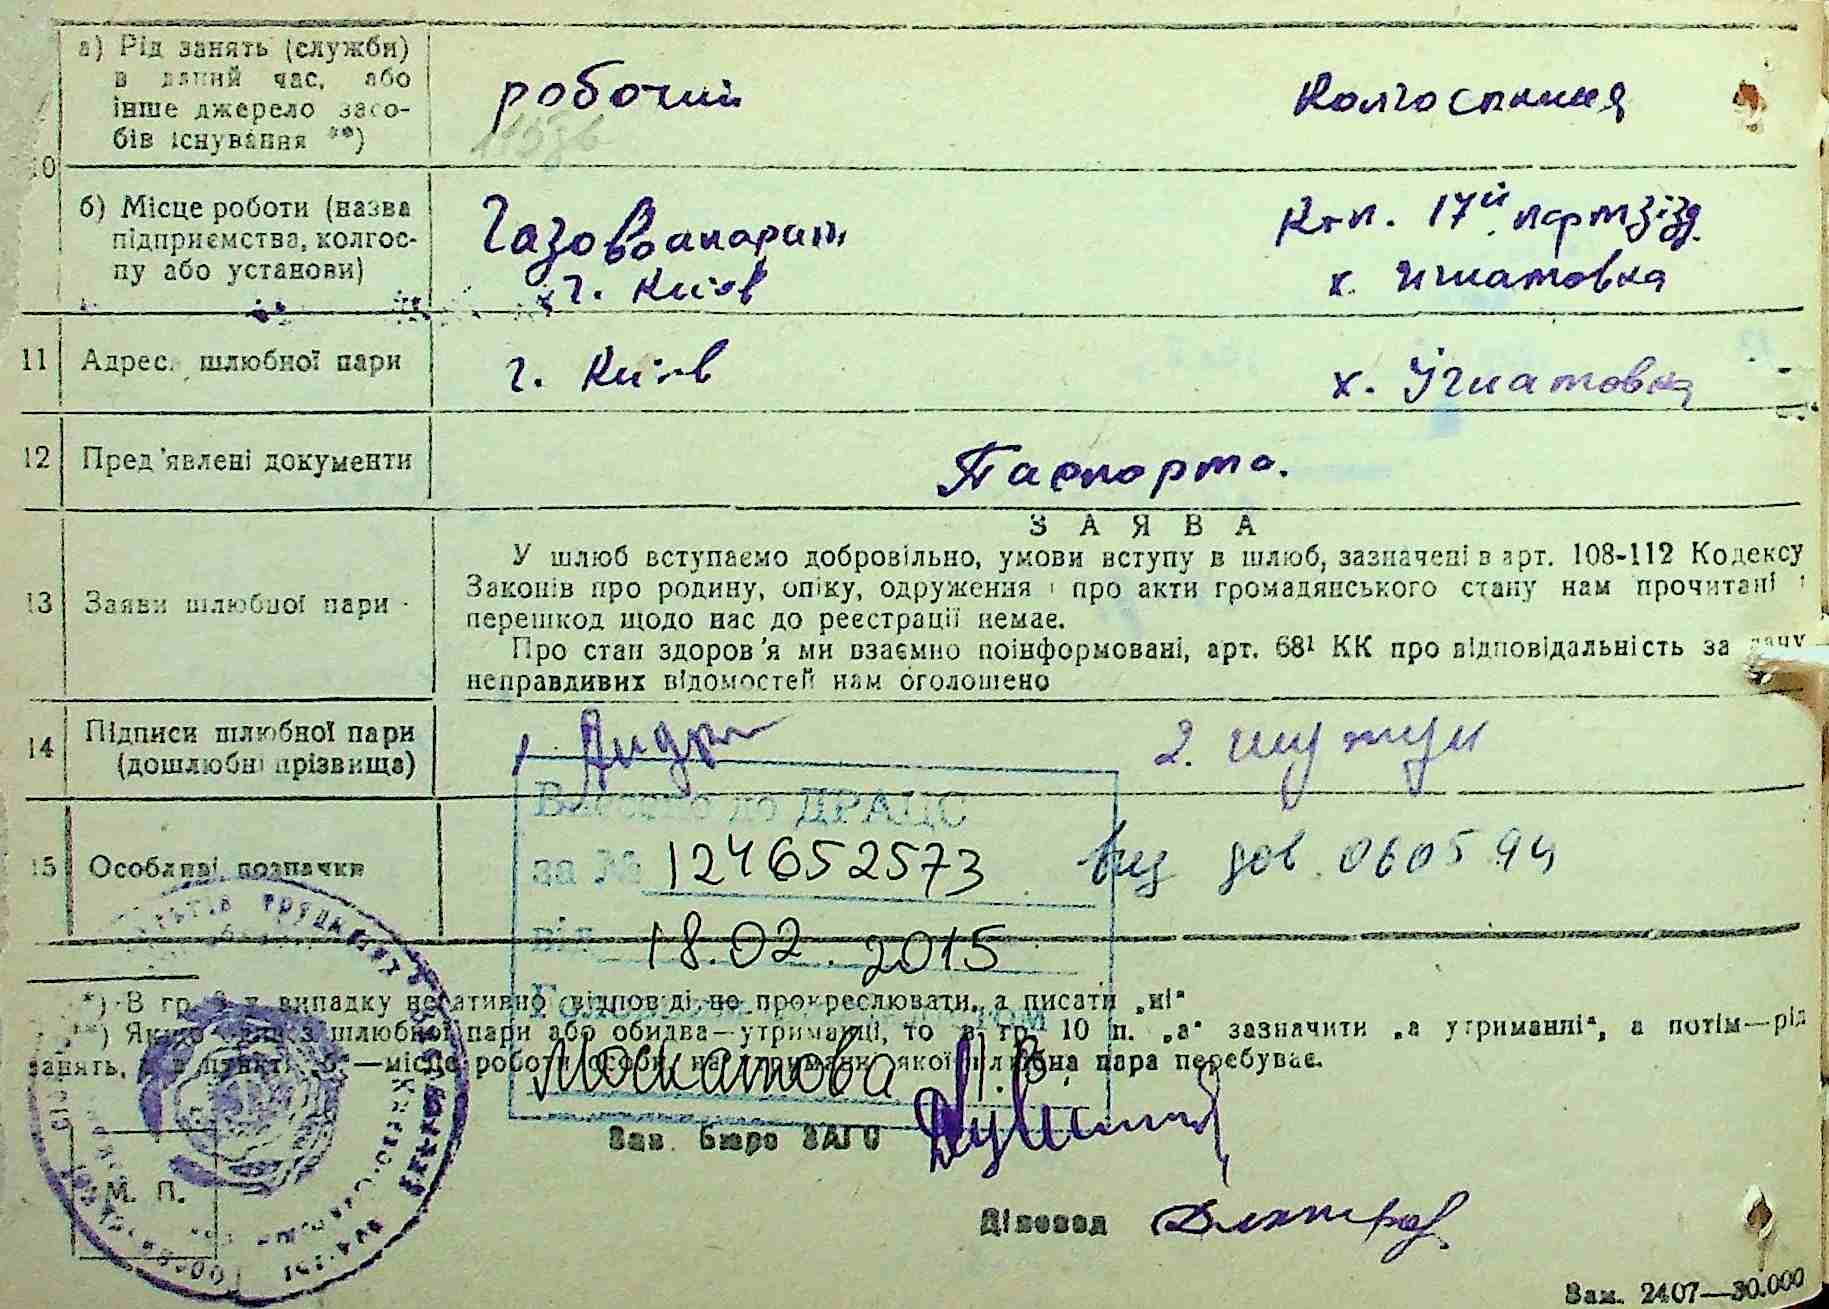 10
а) Рід занять (служби)
в даний час, або
інше джерело засо-
бів існування **)
робочий
Колгоспниця
б) Місце роботи (назва
підприємства, колгос-
пу або установи)
Газовоапарат
г. Київ
Клп. 17й партзїзд
х. Игнатовка
11 Адреса шлюбної пари
г. Київ
х. Ігнатовка
12 Пред'явлені документи
Паспорта.
13 Заяви шлюбної пари
ЗАЯВА
У шлюб вступаємо добровільно, умови вступу в шлюб, зазначені в арт. 108-112 Кодексу
Законів про родину, опіку, одруження і про акти громадянського стану нам прочитані і
перешкод щодо нас до реєстрації немає.
Про стан здоров'я ми взаємно поінформовані, арт. 68¹ КК про відповідальність за дачу
неправдивих відомостей нам оголошено
14 Підписи шлюбної пари
(дошлюбні прізвища)
1. Андр
2.
15 Особливі позначки
Внесено до ДРАЦС
за № 124652573
вид дов. 060594
від 18.02.2015
*) В гр. в випадку негативної відповіді не прокреслювати, а писати „ні“
**) Якщо один з шлюбної пари або обидва—утриманці, то в гр. 10 п. „а“ зазначити „а утриманні“, а потім—рід
занять, а в пункті „б“—місце роботи особи на утриманні якої шлюбна пара перебуває.
Москатова
Зав. бюро ЗАГС
М. П.
Діловод
Зам. 2407—30.000